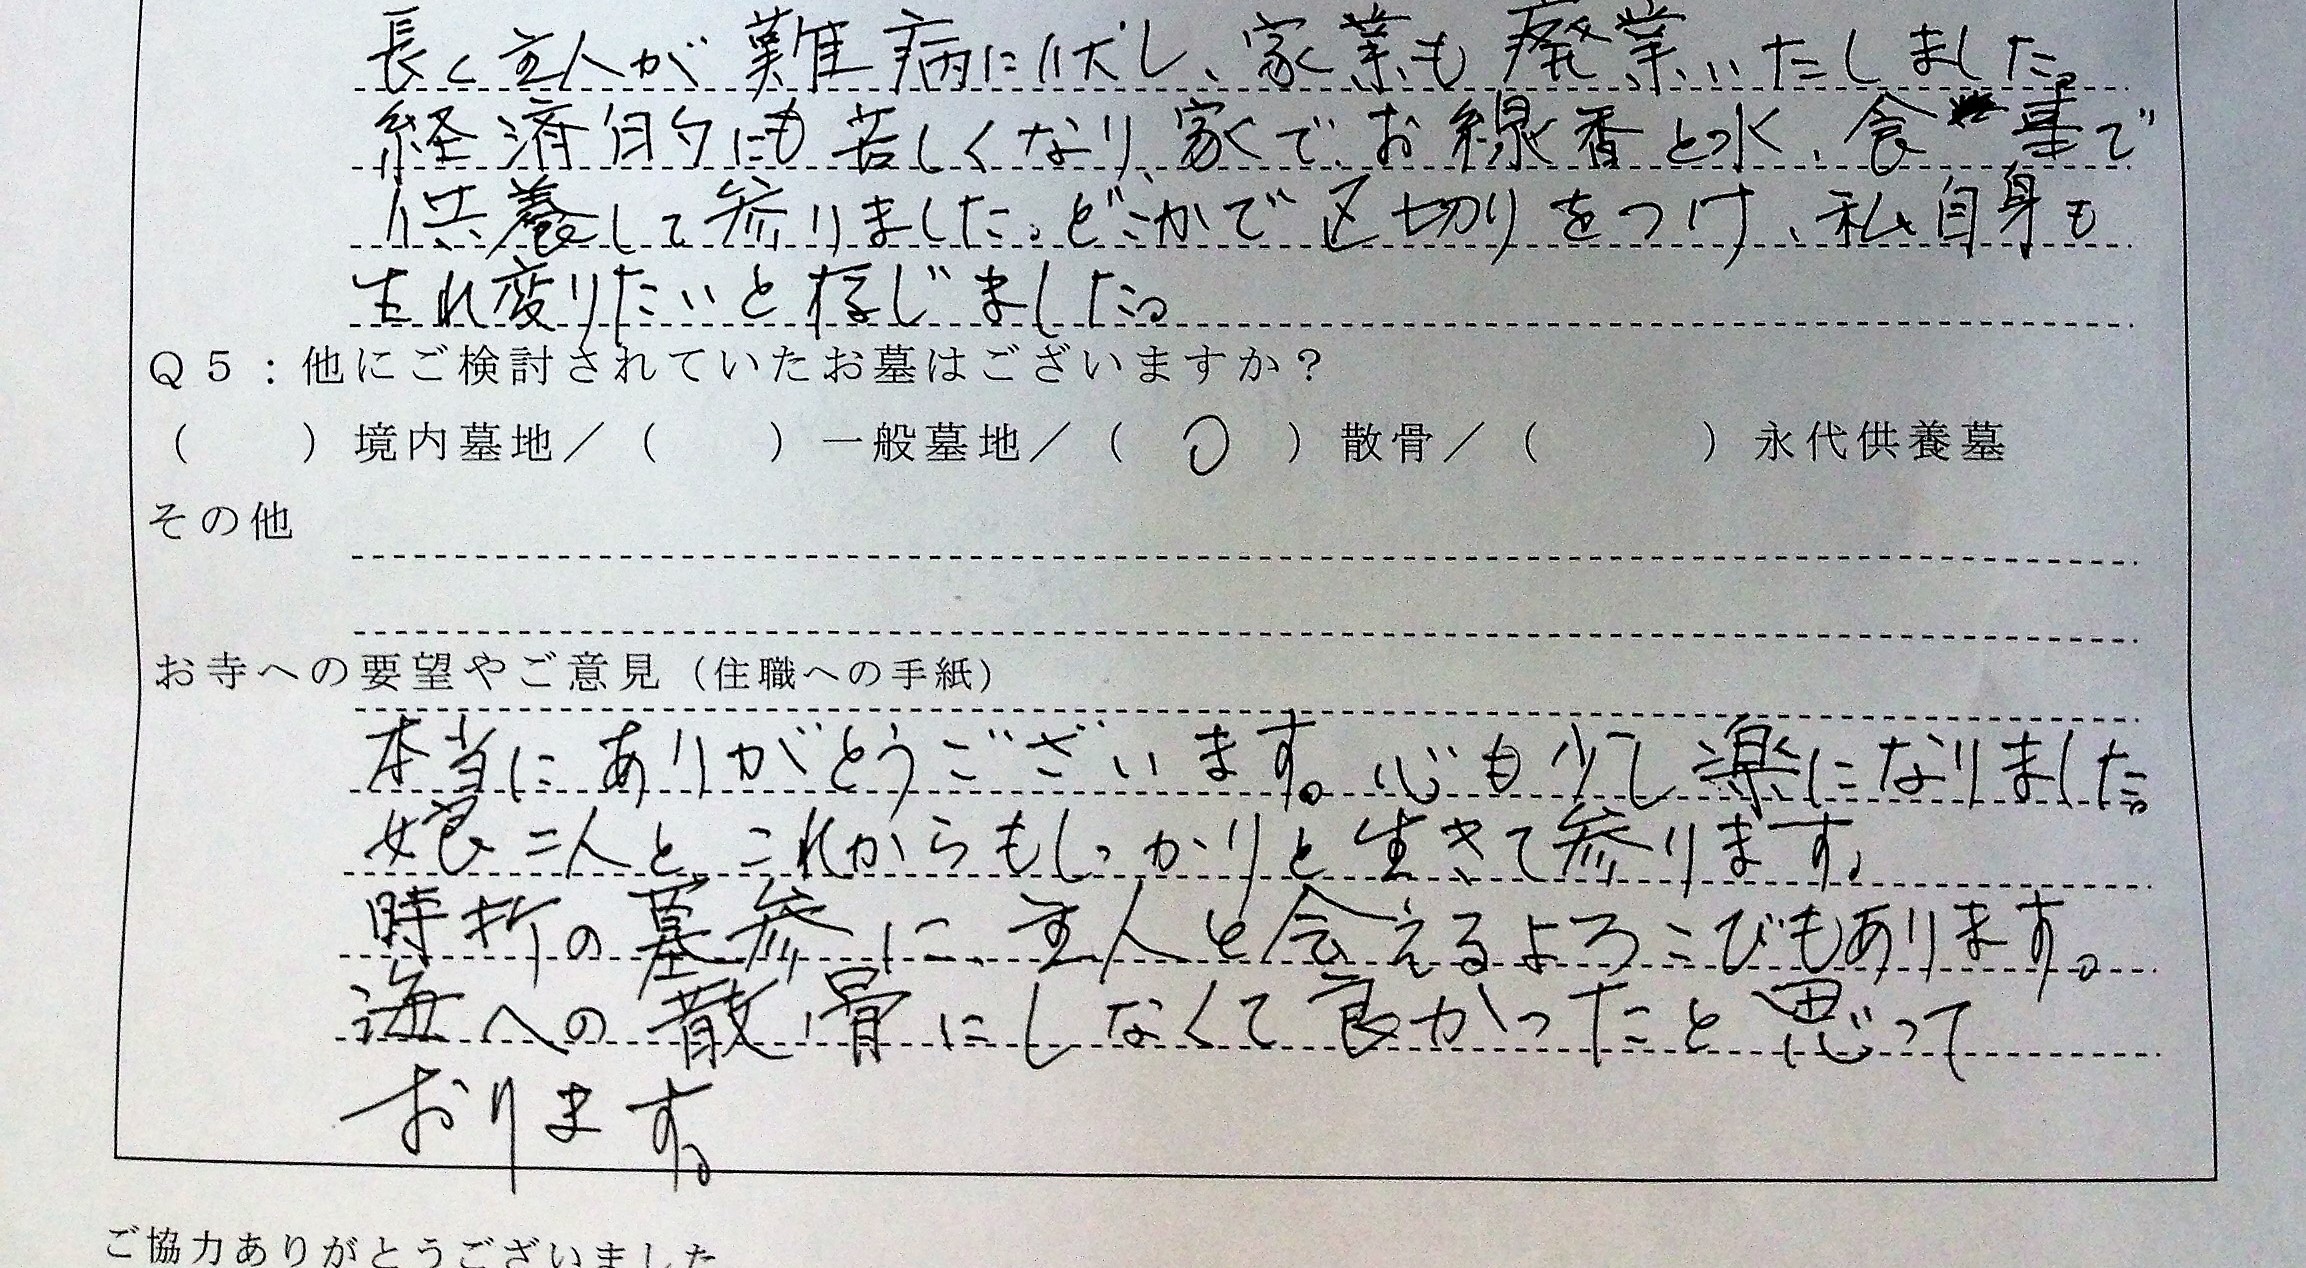 長く主人が難病に伏し、家業も廃業いたしました。
経済的にも苦しくなり、家でお線香と水、食事で
供養して参りました。どこかで区切りをつけ、私自身も
生れ変りたいと存じました。
Q5:他にご検討されていたお墓はございますか?
(　　)境内墓地/(　　)一般墓地/(　○　)散骨/(　　　)永代供養墓
その他
お寺への要望やご意見(住職への手紙)
本当にありがとうございます。心も少し楽になりました。
娘二人と、これからもしっかりと生きて参ります。
時折の墓参に、主人と会えるよろこびもあります。
海への散骨にしなくて良かったと思って
おります。
ご協力ありがとうございました